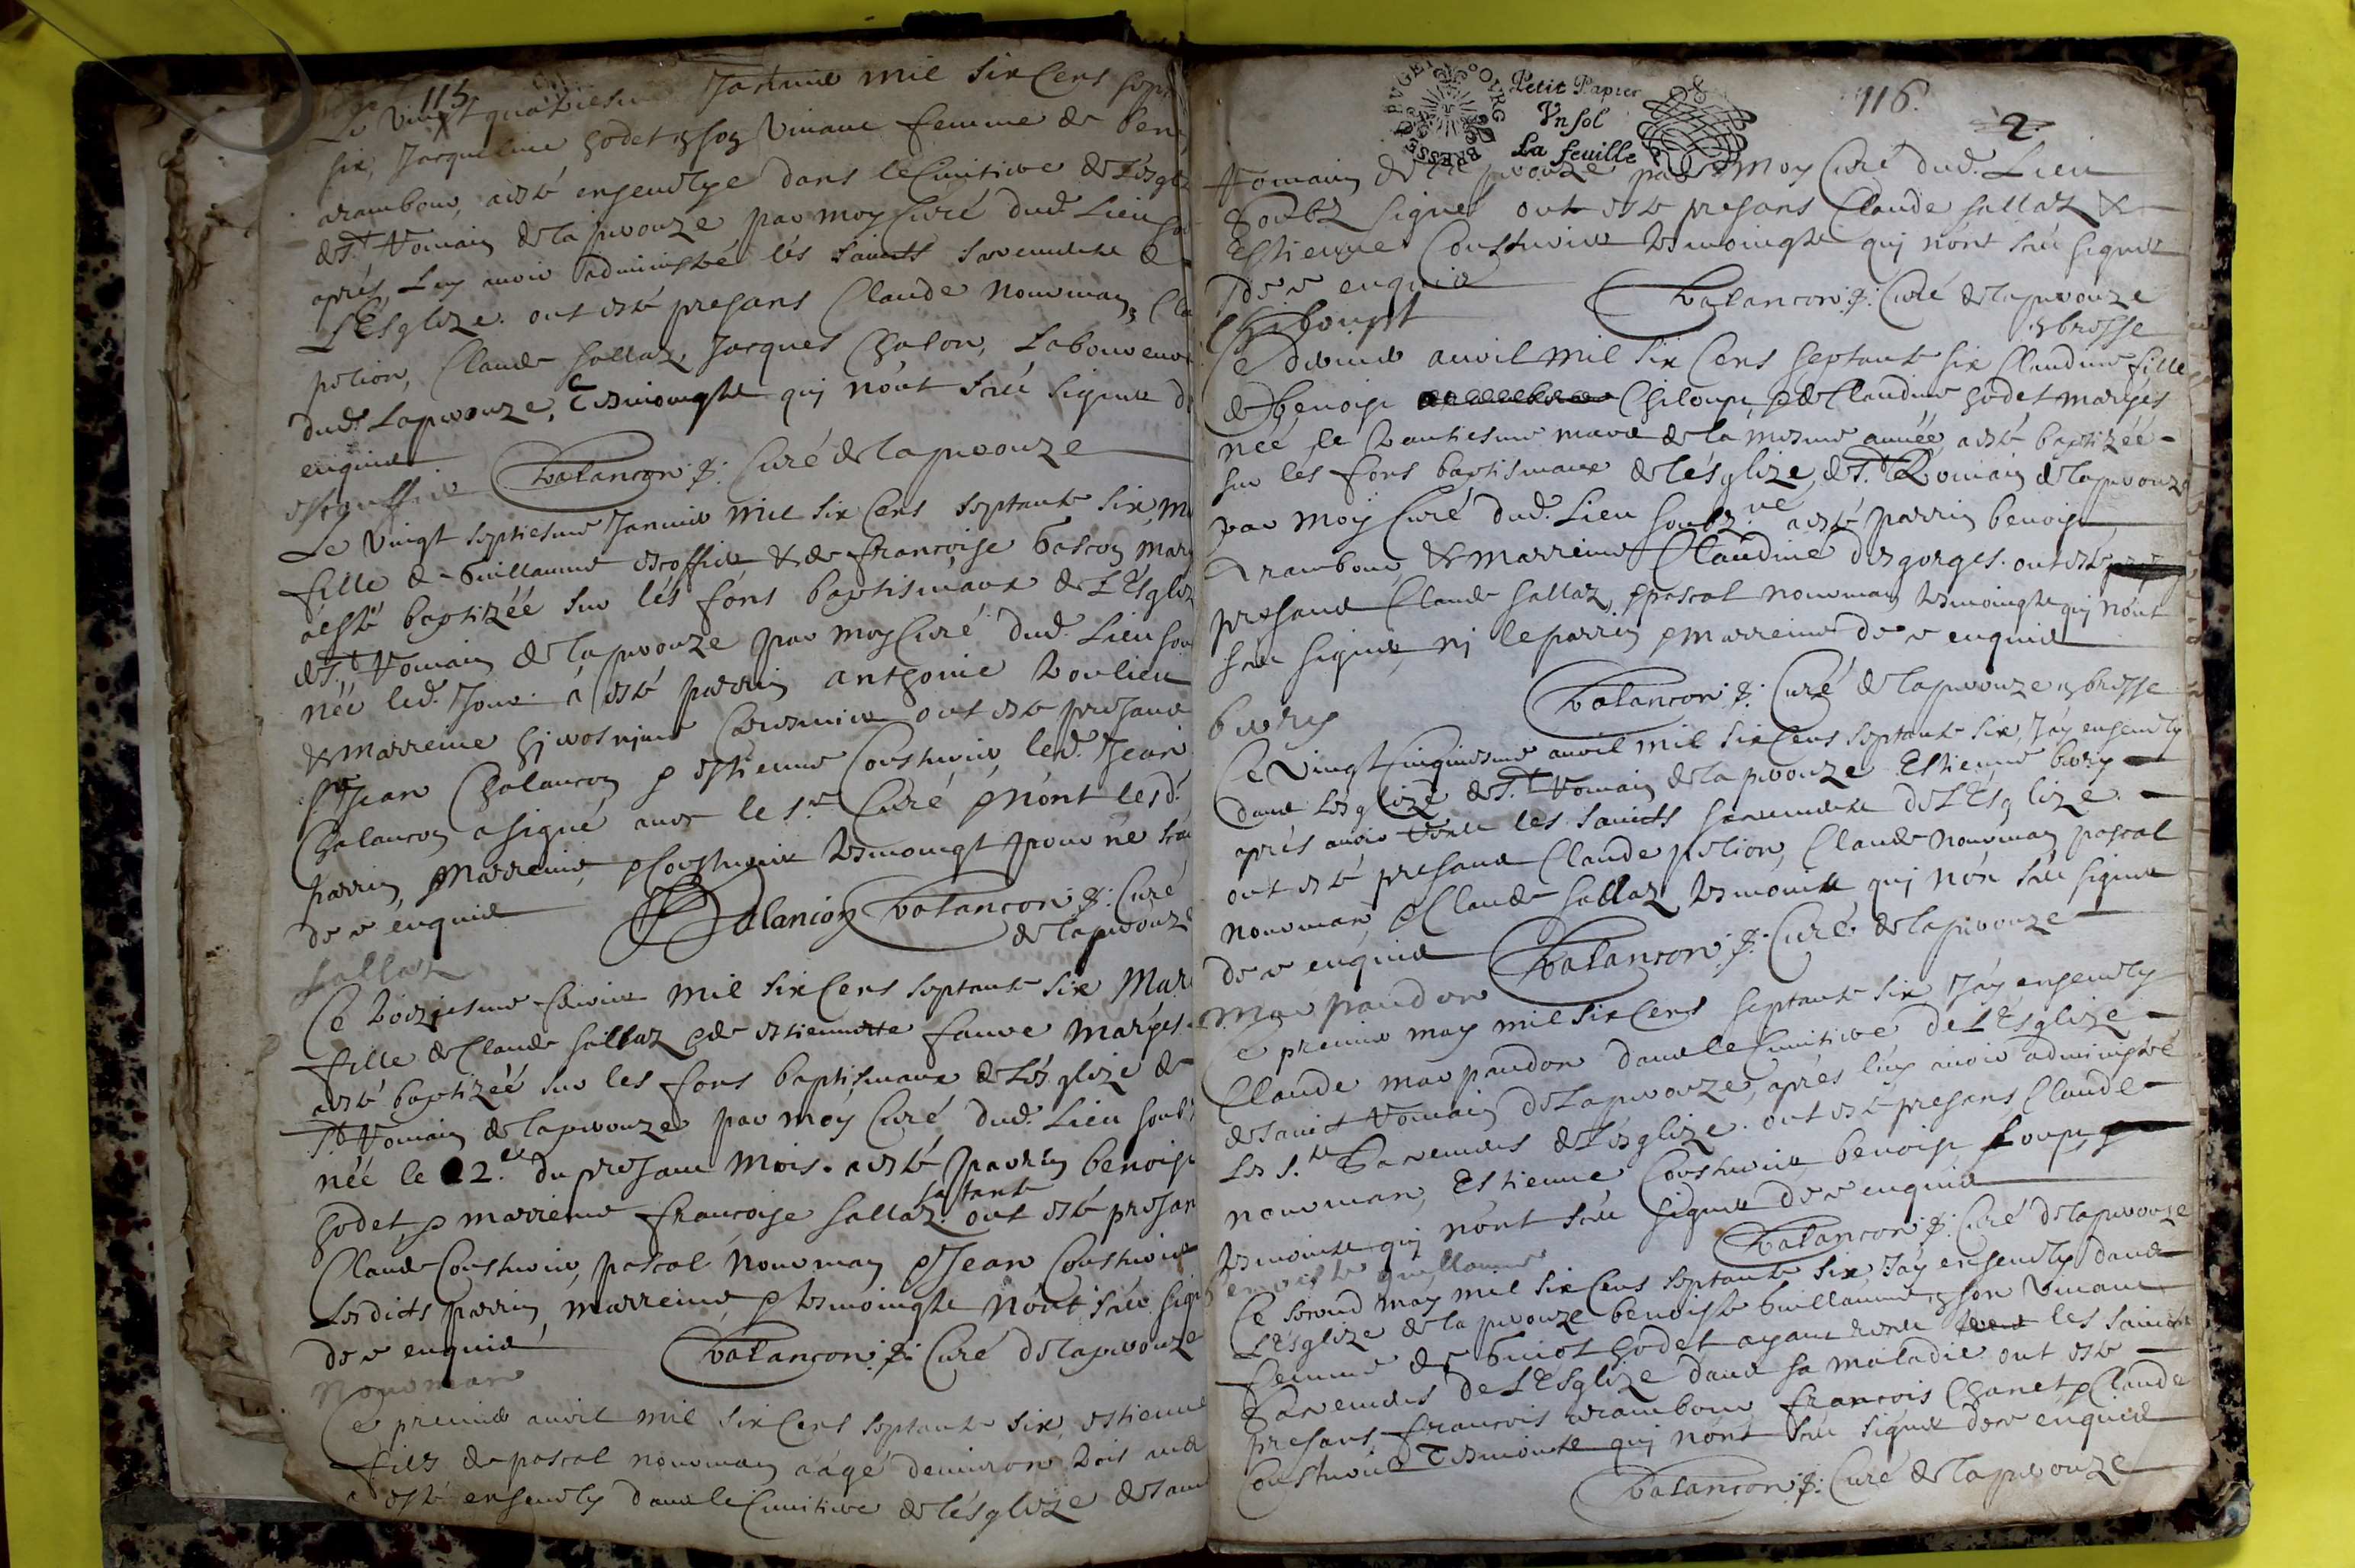 115
Le vingt quatriesme Janvier mil six Cens sept
six, Jacqueline godet, a son vivant femme de ben
arambour, a esté ensevelye dans le Cimitire de L'ésgliz
de St. Romain de lapérouze par moy Curé dud. Lieu
aprés luy avoir administré lés saincts sacremens de
L'Ésglize. ont esté presans Claude nourman, Cla
petion, Claude sallaz, Jacques Chalon, Laboureur
dud. Laperouze, Tesmoingts quj nónt sceu signer de
enquis
Chalancon p. Curé de laperouze
Le vingt septiesme Janvier mil six Cens septante six, m
fille de Guillaume escoffier & de francoise bascon, mary
a esté baptizéé sur lés fóns baptismaux de L'Esgliz
de St. Romain de laperouze par moy Curé dud. Lieu sou
néé led. Jour. a esté parrin anthoine
& marreine ont esté presans
Jean Chalancon & estienne Cousturier, led. Jean
Chalancon a signé avec le sr. Curé & nónt lesd.
parrin, & marreine, & Cousturier tesmoingt pour ne scav
de ce enquis
Chalancon Chalancon p. Curé
de laperouze
sallaz
Ce troizjesme février mil six Cens septante six Mar
fille de Claude sallaz & de estiennette faure maryés
a esté baptizéé sur les fons baptismaux de L'ésglize de
St. Romain de laperouze par móy Curé dud. Lieu soub
néé le 2.e du presant mois. a esté parrin benoist
godet, & marreine francoise sallaz. sa tante ont esté presan
Claude Cousturier, pascal nourman & Jean Cousturier
Lesdicts parrin, marreine & tesmoingts nónt sceu sign
de ce enquis
Chalancon p. Curé de laperouze
Nourman
Ce premier avril mil six Cens septante six, estienne
fils de pascal nourman aagé d'environ trois ans
a esté ensevely dans le Cimitire de l'ésglize de sainct
BRESSE BUGEY BOURG
Petit Papier
Un sol
La feuille
116.
2
Romain de laperouze par moy Curé dud. Lieu
soubz signé ont esté presans Claude sallaz &
Estienne Cousturier tesmoingts quj nónt sceu signer
de ce enquis
Chalancon p. Curé de laperouze
& brosse
Chiloupt
Ce dernier avril mil six Cens septante six Claudine fille
de benoist Chiloup, & de Claudine godet maryés
néé le trantiesme mars de la mesme annéé, a esté baptizéé
sur les fons baptismaux de lésglize, de St. Romain de laperouze
par moy Curé dud. Lieu soubz.né a esté parrin benoist
arambour, & marreine Claudine desgorges. ont esté
presans Claude sallaz, & pascal nourman tesmoingts quj nónt
sceu signer, nj le parrin & marreine de ce enquis
Chalancon p. Curé de laperouze & brosse
bury
Ce vingt cinquiesme avril mil six Cens septante six, J'ay ensevely
dans L'esglize de St. Romain de laperouze Estienne bury
aprés avoir receu les saincts sacremens de L'Esglize.
ont esté presans Claude petion, Claude nourman, pascal
nourman, & Claude sallaz, tesmoins quj nón sceu signer
de ce enquis
Chalancon p. Curé de laperouze
marpaudon
Ce premier may mil six Cens septante six J'ay ensevely
Claude marpaudon dans le Cimitire de L'Esglize
de sainct Romain de Laperouze, aprés luy avoir administré
Les s.ts Sacremens de L'ésglize. ont esté presans Claude
nourman, Estienne Cousturier, benoist Loup,
tesmoins quj nónt sceu signer de ce enquis
Chalancon p. Curé de laperouze
benoiste guillaume
Ce second may mil six Cens septante six, J'ay ensevely dans
L'Esglize de laperouze benoiste Guillaume, a son vivant
femme de godet ayant receu les saincts
Sacremens de L'Esglize dans sa maladie ont esté
presans francois arambour, francois Chanet & Claude
Cousturier Tesmoins quj nónt sceu signer de ce enquis
Chalancon p. Curé de laperouze